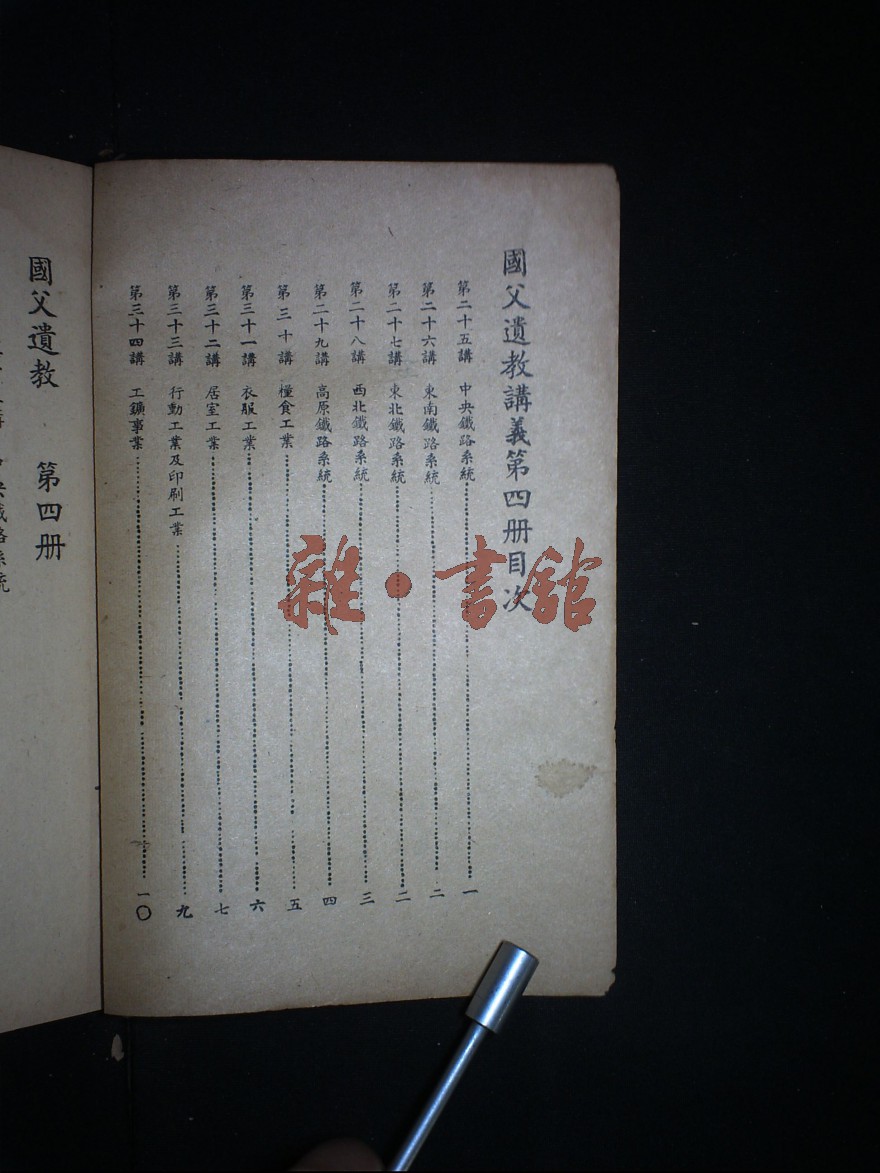 國父遺教講義第四册目次
第二十五講 中央鐵路系統………一
第二十六講 東南鐵路系統………二
第二十七講 東北鐵路系統………二
第二十八講 西北鐵路系統………三
第二十九講 高原鐵路系統………四
第三十講 糧食工業………五
第三十一講 衣服工業………六
第三十二講 居室工業………七
第三十三講 行動工業及印刷工業………九
第三十四講 工鑛事業………一〇
國父遺教 第四册
鐵路系統
雜·書館